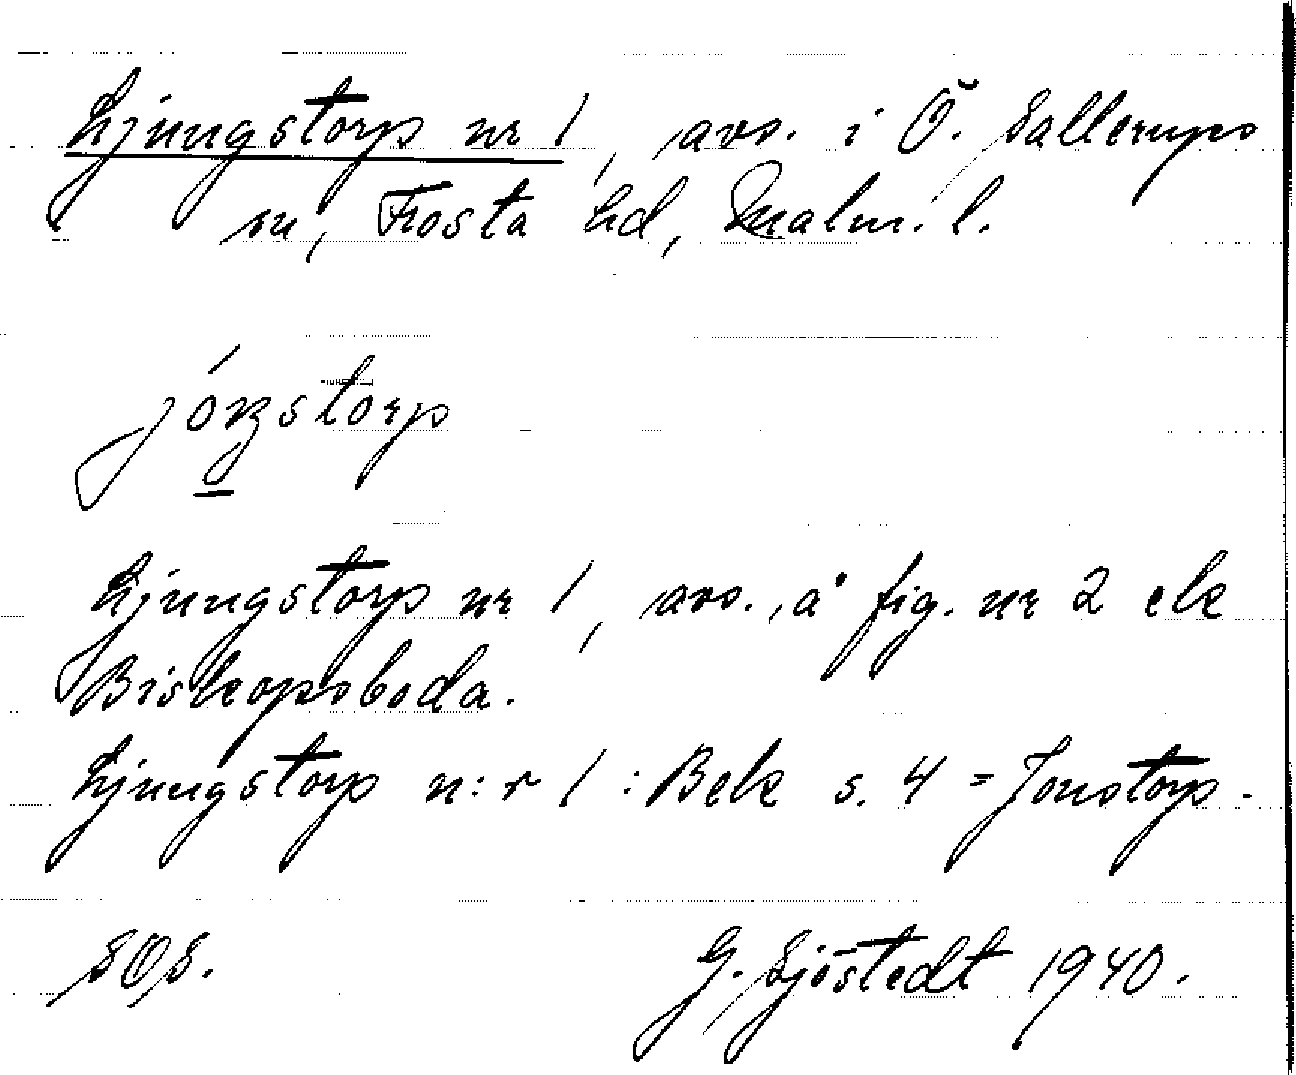 Ljungstorp nr 1, avs. i Ö. Sallerups
sn, Frosta hd, Malm. l.
Ljungstorp nr 1, avs., å fig. nr 2 ek
Biskopsboda.
Ljungstorp n:r 1 : Bek s. 4 = Jonstorp.
SOS. G. Sjöstedt 1940.